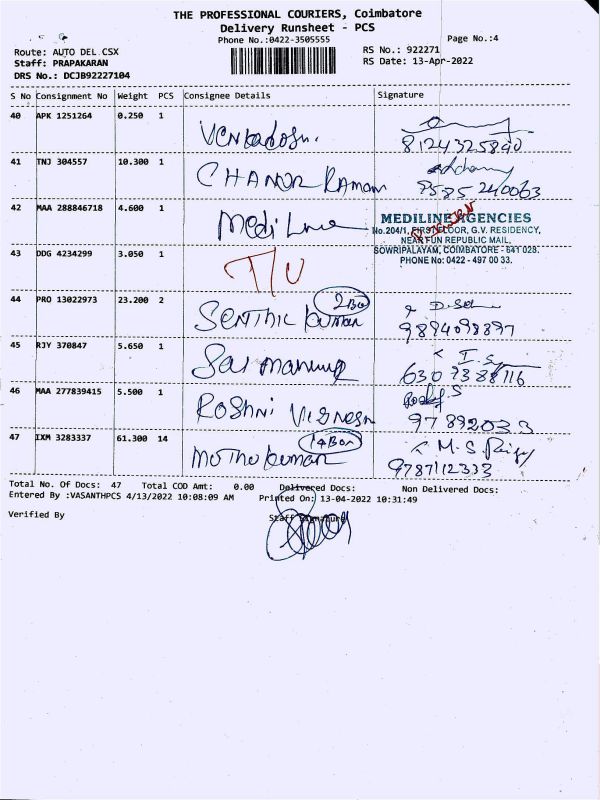 THE PROFESSIONAL COURIERS, Coimbatore
Delivery Runsheet - PCS
Phone No.:0422-3505555
Page No.:4
Route: AUTO DEL CSX
RS No.: 922271
Staff: PRAPAKARAN
RS Date: 13-Apr-2022
DRS No.: DCJB92227104
S No Consignment No Weight PCS Consignee Details Signature
40 APK 1251264 0.250 1
8124325890
41 TNJ 304557 10.300 1 CHANDR RAMAN
9585240063
42 MAA 288846718 4.600 1 Medi Line
MEDILINE AGENCIES
No.204/1, FIRST FLOOR, G.V. RESIDENCY,
NEAR FUN REPUBLIC MAIL,
SOWRIPALAYAM, COIMBATORE - 641 028.
PHONE No: 0422 - 497 00 33.
43 DDG 4234299 3.050 1 T/U
44 PRO 13022973 23.200 2 SENTHIL KUMAR 2 Box
9894098897
45 RJY 370847 5.650 1
6309388116
46 MAA 277839415 5.500 1 ROSHNI VIGNESH
97892033
47 IXM 3283337 61.300 14 MUTHU KUMAR 14 Box
9787112333
Total No. Of Docs: 47 Total COD Amt: 0.00 Delivered Docs: Non Delivered Docs:
Entered By :VASANTHPCS 4/13/2022 10:08:09 AM Printed On: 13-04-2022 10:31:49
Verified By Staff Signature